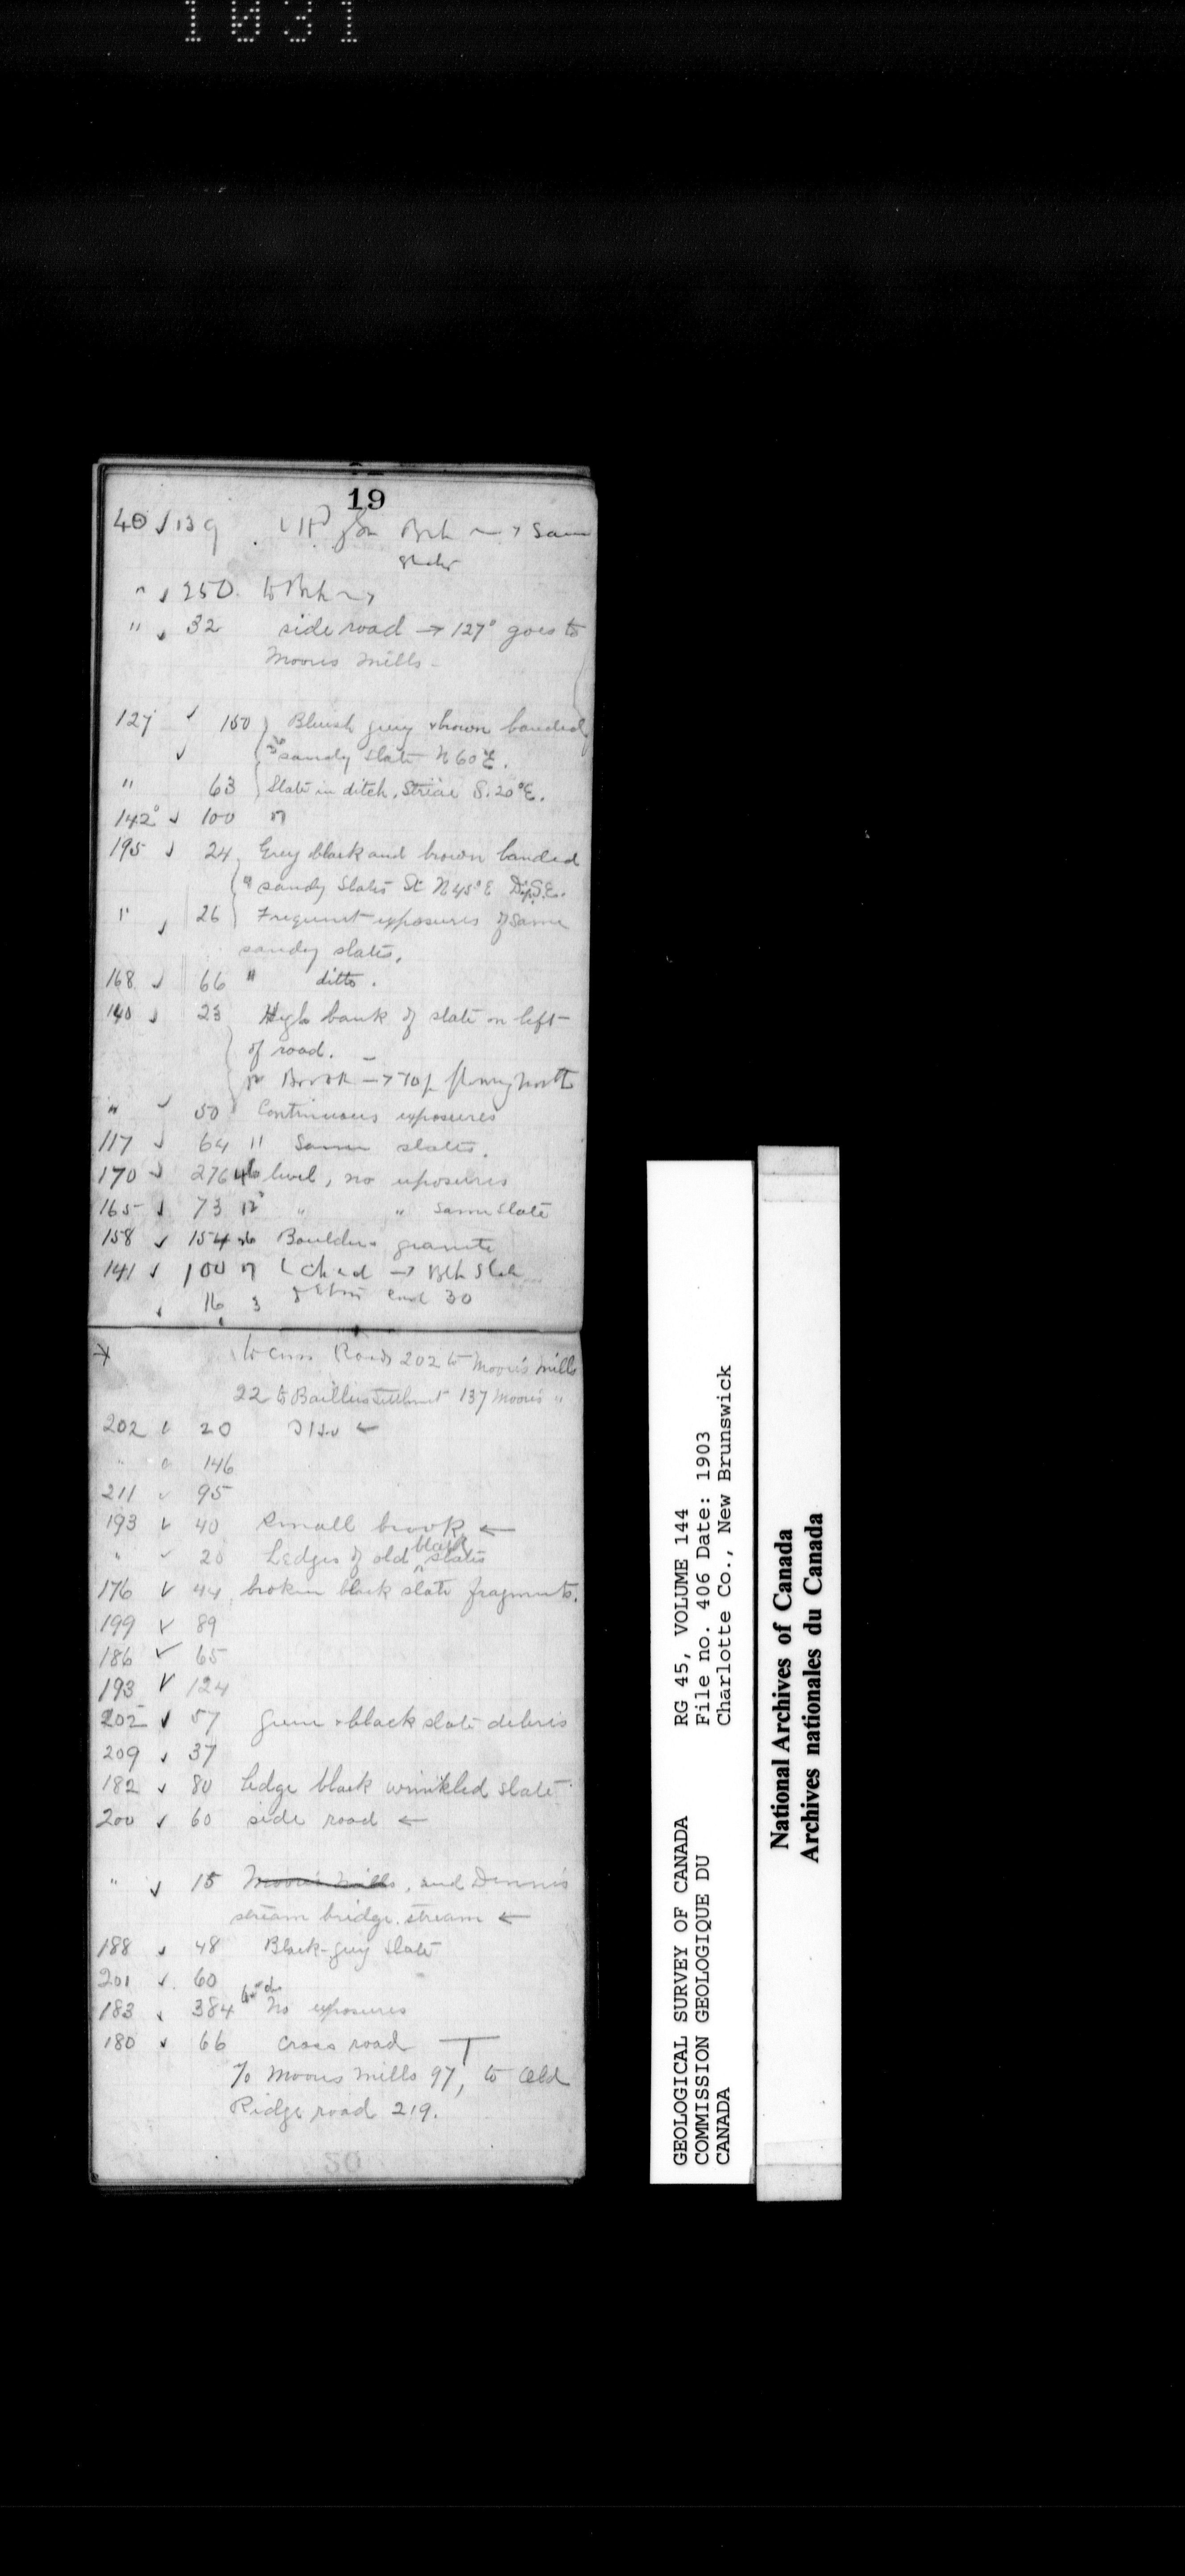 1031
19
40 ✓ 139
" ✓ 250. to Brk →
" ✓ 32 side road → 127° goes to
Moores Mills -
127 ✓ 150 Bluish grey & brown banded
✓ sandy slate N 60 E.
" 63 Slate in ditch. Striae S. 20° E.
142° ✓ 100
195 ✓ 24 Grey black and brown banded
sandy slates St N 45° E Dip S.E.
" ✓ 26 Frequent exposures of same
sandy slates.
168 ✓ 66 " ditto.
140 ✓ 23 High bank of slate on left
of road.
Brook → flowing north
" ✓ 50 Continuous exposures
117 ✓ 64 " Same slates.
170 ✓ 276 level, no exposures
165 ✓ 73 " " same slate
158 ✓ 154 Boulders granite
141 ✓ 100
✓ 16 3 end 30
to cross Roads 202 to Moore's mills
22 to Baillie Settlement 137 Moore's "
202 ✓ 20
" 146
211 ✓ 95
193 ✓ 40 small brook ←
" ✓ 20 Ledges of old black slates
176 ✓ 44 broken black slate fragments.
199 ✓ 89
186 ✓ 65
193 ✓ 124
202 ✓ 57 green & black slate debris
209 ✓ 37
182 ✓ 80 Ledge black wrinkled slate
200 ✓ 60 side road ←
" ✓ 15 Moore's Mills, and Dennis
stream bridge. stream ←
188 ✓ 48 Black-grey slate
201 ✓ 60
183 ✓ 384 No exposures
180 ✓ 66 cross road
To Moores mills 97, to Old
Ridge road 219.
20
GEOLOGICAL SURVEY OF CANADA RG 45, VOLUME 144
COMMISSION GEOLOGIQUE DU File no. 406 Date: 1903
CANADA Charlotte Co., New Brunswick
National Archives of Canada
Archives nationales du Canada